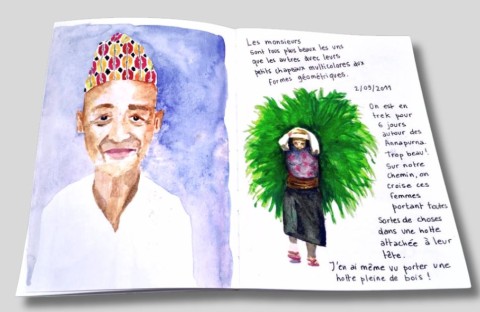 Les monsieurs
sont tous plus beaux les uns
que les autres avec leurs
petits chapeaux multicolores aux
formes géométriques.
2/09/2011
On est en
trek pour
6 jours
autour des
Annapurna.
Trop beau!
Sur notre
chemin, on
croise ces
femmes
portant toutes
sortes de choses
dans une hotte
attachée à leur
tête.
J'en ai même vu porter une
hotte pleine de bois !